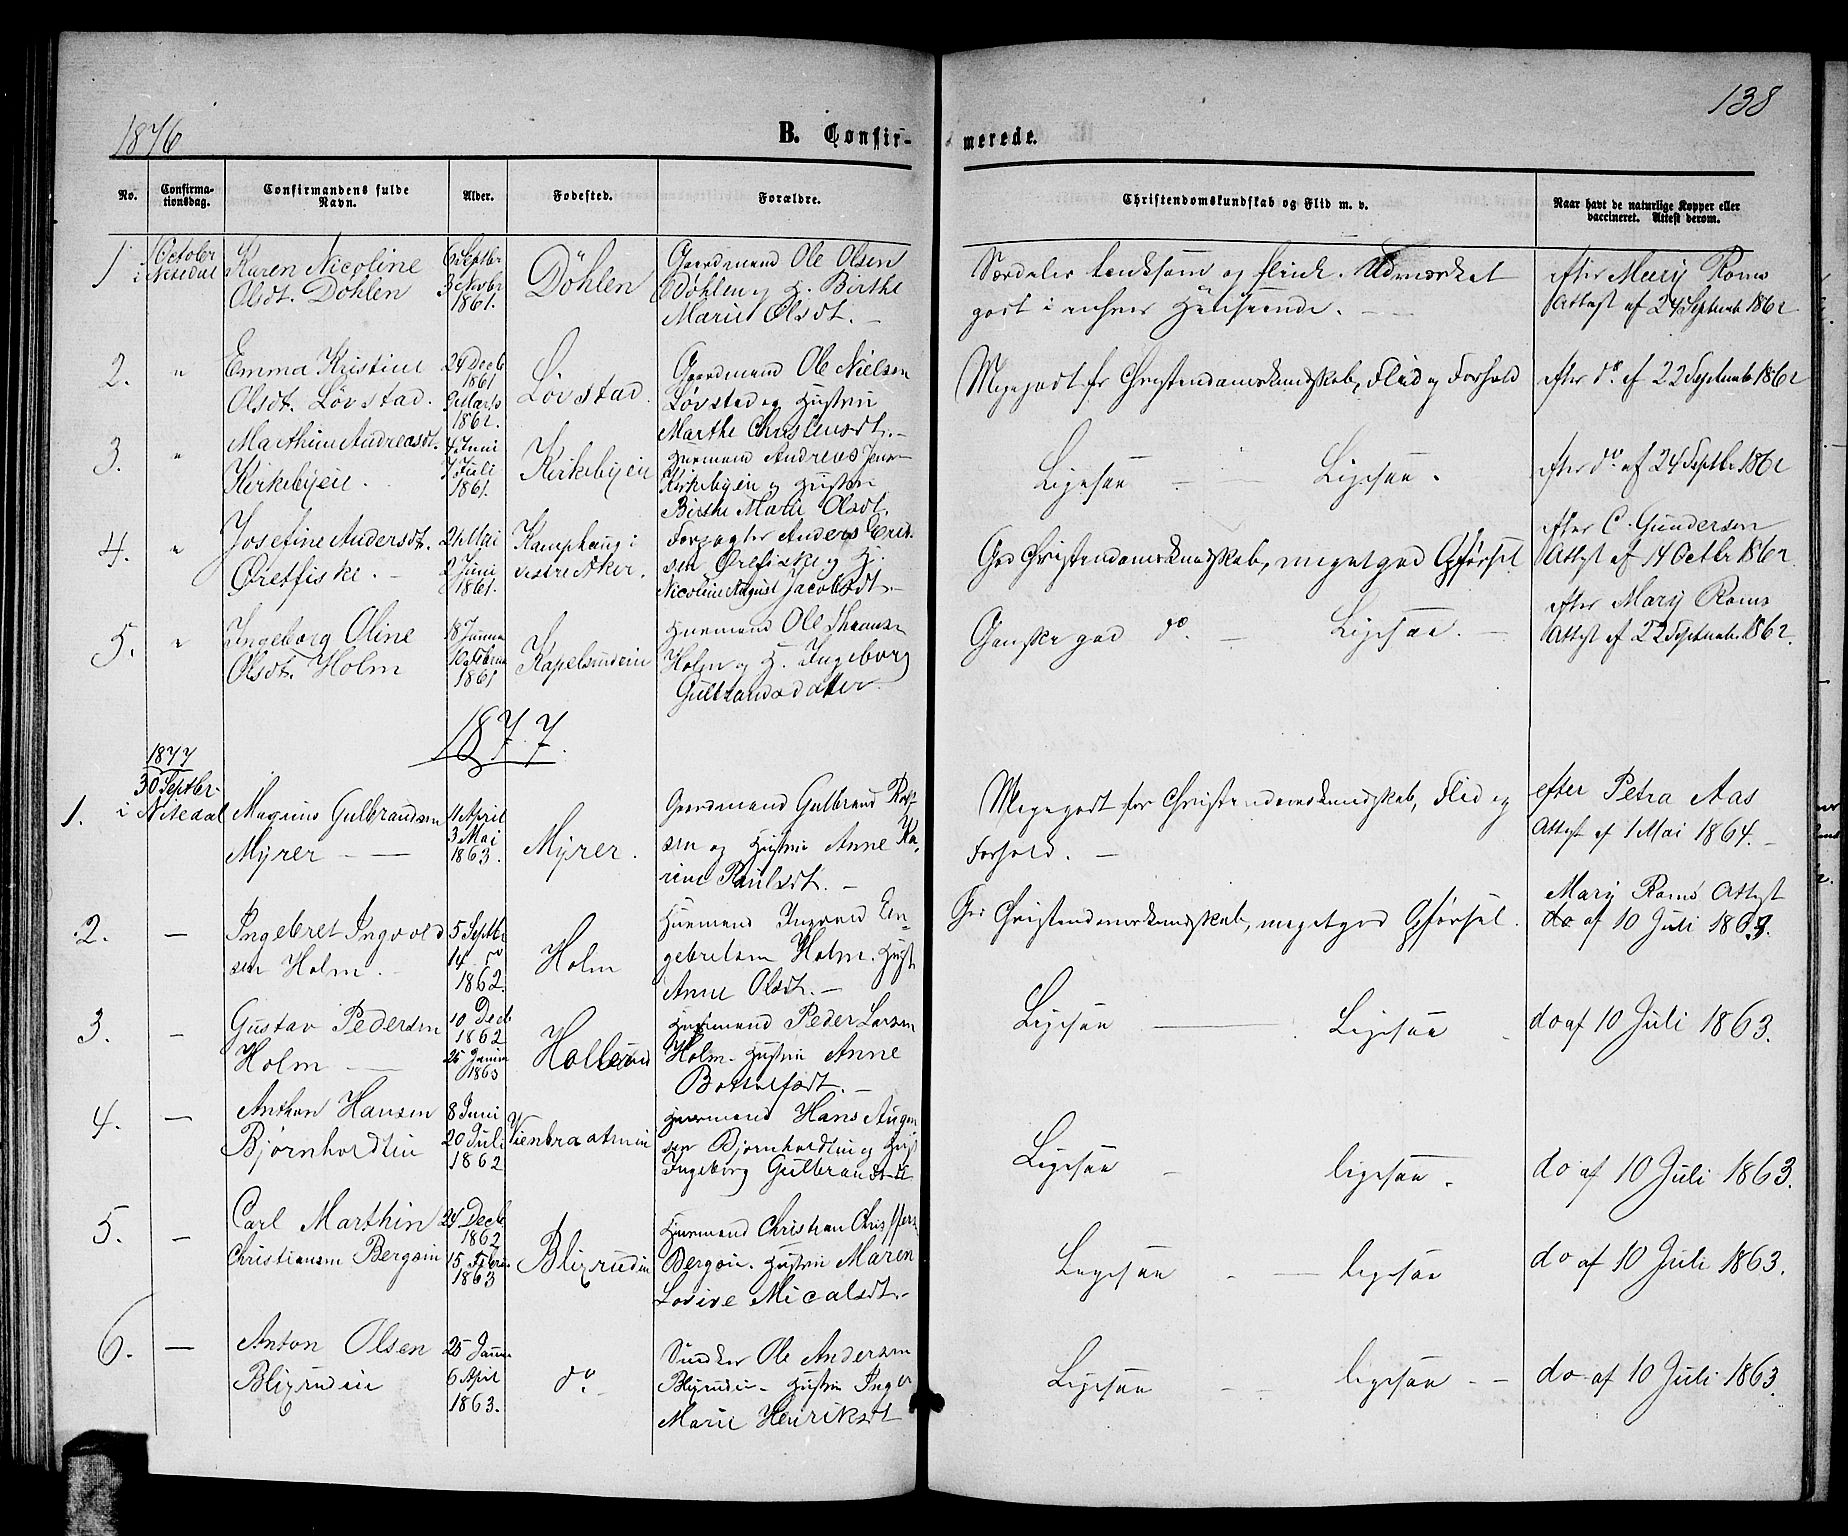 138
1876
B. Confir-
merede.
No.
Confirma-
tionsdag.
Confirmandens fulde
Navn.
Alder.
Fødested.
Forældre.
Christendomskundskab og Flid m. v.
Naar havt de naturlige Kopper eller
vaccineret. Attest derom.
1
October
i Nitedal
Karen Nicoline
Olsdt. Döhlen
6 Septbr
3 Novbr
1861.
Döhlen
Gaardmand Ole Olsen
Döhlen og H. Birthe
Marie Olsdt. —
Særdeles tænksom og flink. Udmærket
godt i enhver Henseende. —
efter Mary Roms
Attest af 24 Septemb 1862
2.
"
Emma Kristine
Olsdt. Lövstad.
29 Decb
1861
9 Marts
1862.
Lövstad.
Gaardmand Ole Nielsen
Lövstad og Hustru
Marthe Christensdt. —
Megegodt for Christendomskundskab, Flid og Forhold
efter do. af 22 Septemb 1862
3.
"
Marthine Andreasdt.
Kirkebyeie.
4 Juni
7 Juli
1861.
Kirkebyeie
Huusmand Andreas Jensen
Kirkebyeie og Hustru
Birthe Marie Olsdt.
Ligesaa — Ligesaa.
efter do. af 24 Septbr 1862
4.
"
Josefine Andersdt.
Øretfiske. —
2 Juni
1861.
Kamphaug i
vestre Aker.
Forpagter Anders Erik-
sen Øretfiske og H.
Nicoline August Jacobsdt. —
God Christendomskundskab, megetgod Opförsel
efter C. Gundersen
Attest af 14 Octbr 1862
5.
"
Ingeborg Oline
Olsdt. Holm
18 Januar
10 Februar
1861
Kapelsrudeie
Huusmand Ole
Holm og H. Ingeborg
Gulbrandsdatter.
Ganske god do. — Ligesaa. —
efter Mary Roms
Attest af 22 Septemb 1862.
1877.
1877
30 Septbr.
i Nitedal
1.
Magnus Gulbrandsen
Myrer —
4 April
3 Mai
1863.
Myrer.
Gaardmand Gulbrand
sen og Hustru Anne Ka-
rine Paulsdt. —
Megegodt for Christendomskundskab, Flid og
Forhold. —
efter Petra Aas
Attest af 1 Mai 1864. —
2.
—
Ingebret Ingvold
sen Holm. —
5 Septbr
14 do
1862.
Holm
Huusmand Ingvold En-
gebretsen Holm. Hust
Anne Olsdt. —
God Christendomskundskab, megetgod Opförsel.
Mary Roms Attest
do af 10 Juli 1863.
3.
—
Gustav Pedersen
Holm —
10 Decb
1862
25 Januar
1863
Huusmand Peder Larsen
Holm. Hustru Anne
Ligesaa — Ligesaa
do af 10 Juli 1863.
4.
—
Anthon Hansen
Bjørnholdtin
8 Juni
20 Juli
1862
Huusmand Hans Augen
sen Bjørnholdtin og Hust
Ingeborg Gulbrandsdt
Ligesaa — ligesaa.
do af 10 Juli 1863.
5.
—
Carl Marthin
Christiansen Bergseie
24 Decb.
1862
15 Febru
1863
Blixrudeie
Huusmand Christian Christoffers
Bergseie. Hustru Maren
Lovise Micalsdt. —
Ligesaa — ligesaa
do af 10 Juli 1863.
6.
—
Anton Olsen
Blixrudeie
25 Januar
6 April
1863.
do.
Snedker Ole Andersen
Blixrudeie. Hustru Inger
Marie Henriksdt
Ligesaa — ligesaa —
do af 10 Juli 1863.